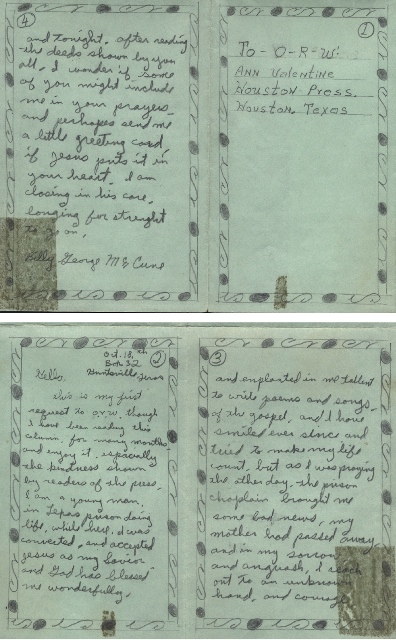 ④
and tonight, after reading
the deeds shown by you
all, I wonder if some
of you might include
me in your prayers
and perhapes send me
a little greeting card
if Jesus puts it in
your heart. I am
closing in his care,
longing for strenght
to go on.
Billy George McCune
①
To-O-R-W:
Ann Valentine
Houston Press.
Houston, Texas
Oct. 18, th
Box 32
②
Huntsville, Texas
Hello,
this is my first
request to O.R.W. though
I have been reading this
column, for many months
and enjoy it, especially
the kindness shown
by readers of the press,
I am a young man,
in Texas prison doing
life, while here, I was
converted, and accepted
Jesus as my Savior
and God has blessed
me wonderfully.
③
and enplanted in me tallent
to write poems and songs,
of the gospel, and I have
smiled ever since and
tried to make my life
count, but as I was praying
the other day, the prison
chaplain brought me
some bad news, my
mother had passed away
and in my sorrow
and anguash, I reach
out to an unknown
hand, and courage